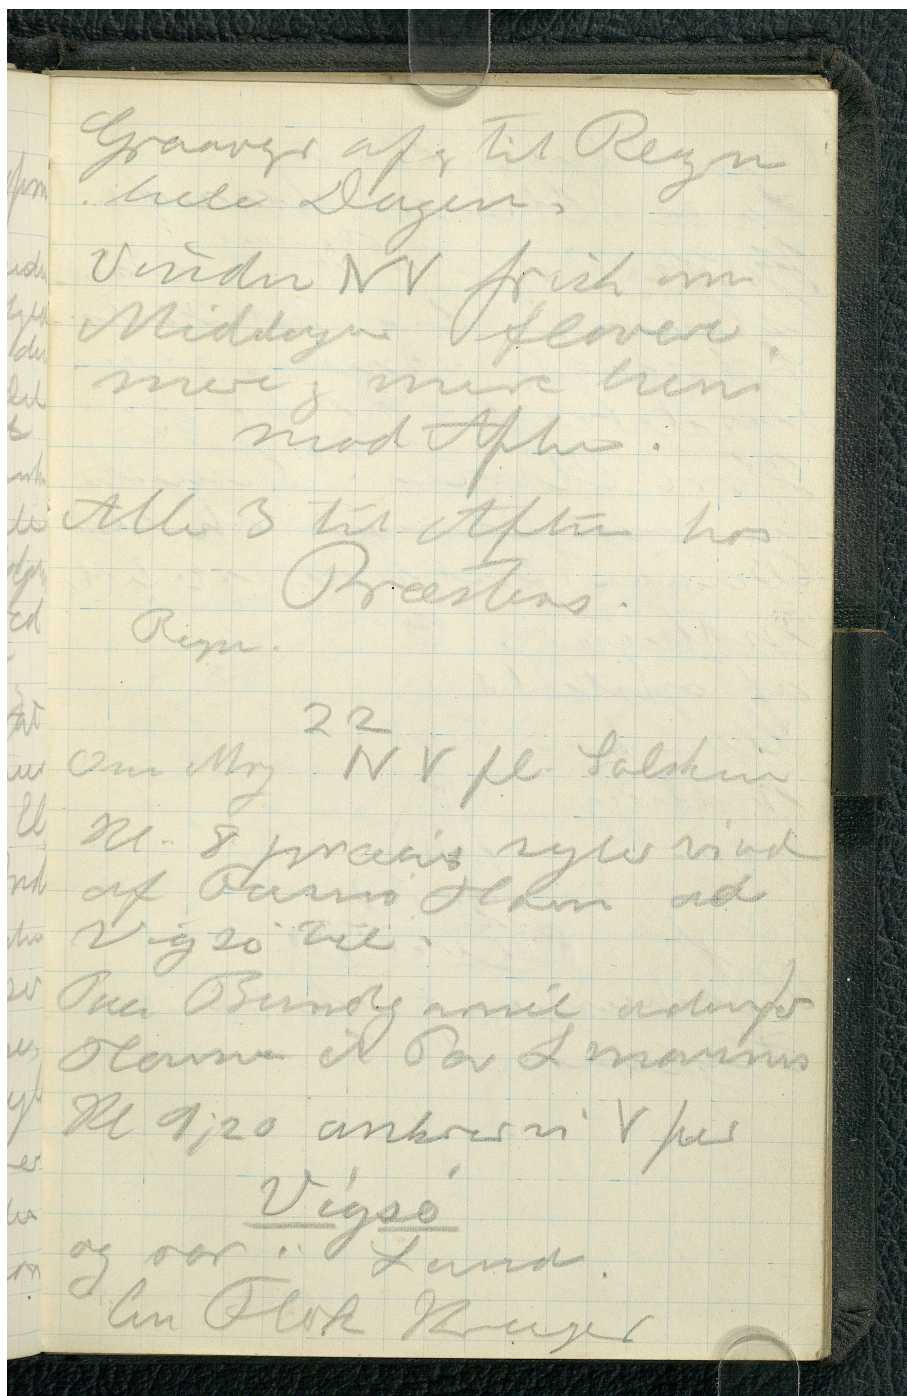 Graavejr af g til Regn
hele Dagen.
Vinden NV frisk om
Middagen flovere,
mere g mere hen
mod Aften.
Alle 3 til Aften hos
Præstens.
Regn.
22
Om Mrg NV fl. Solskin
Kl. 8 præcis sejler vi ud
af Havn ad
Vigsø til.
Paa
Havnen et Par Lommer
Kl 9,20 ankrer vi V for
Vigsø
og ror i Land.
En Flok Krager